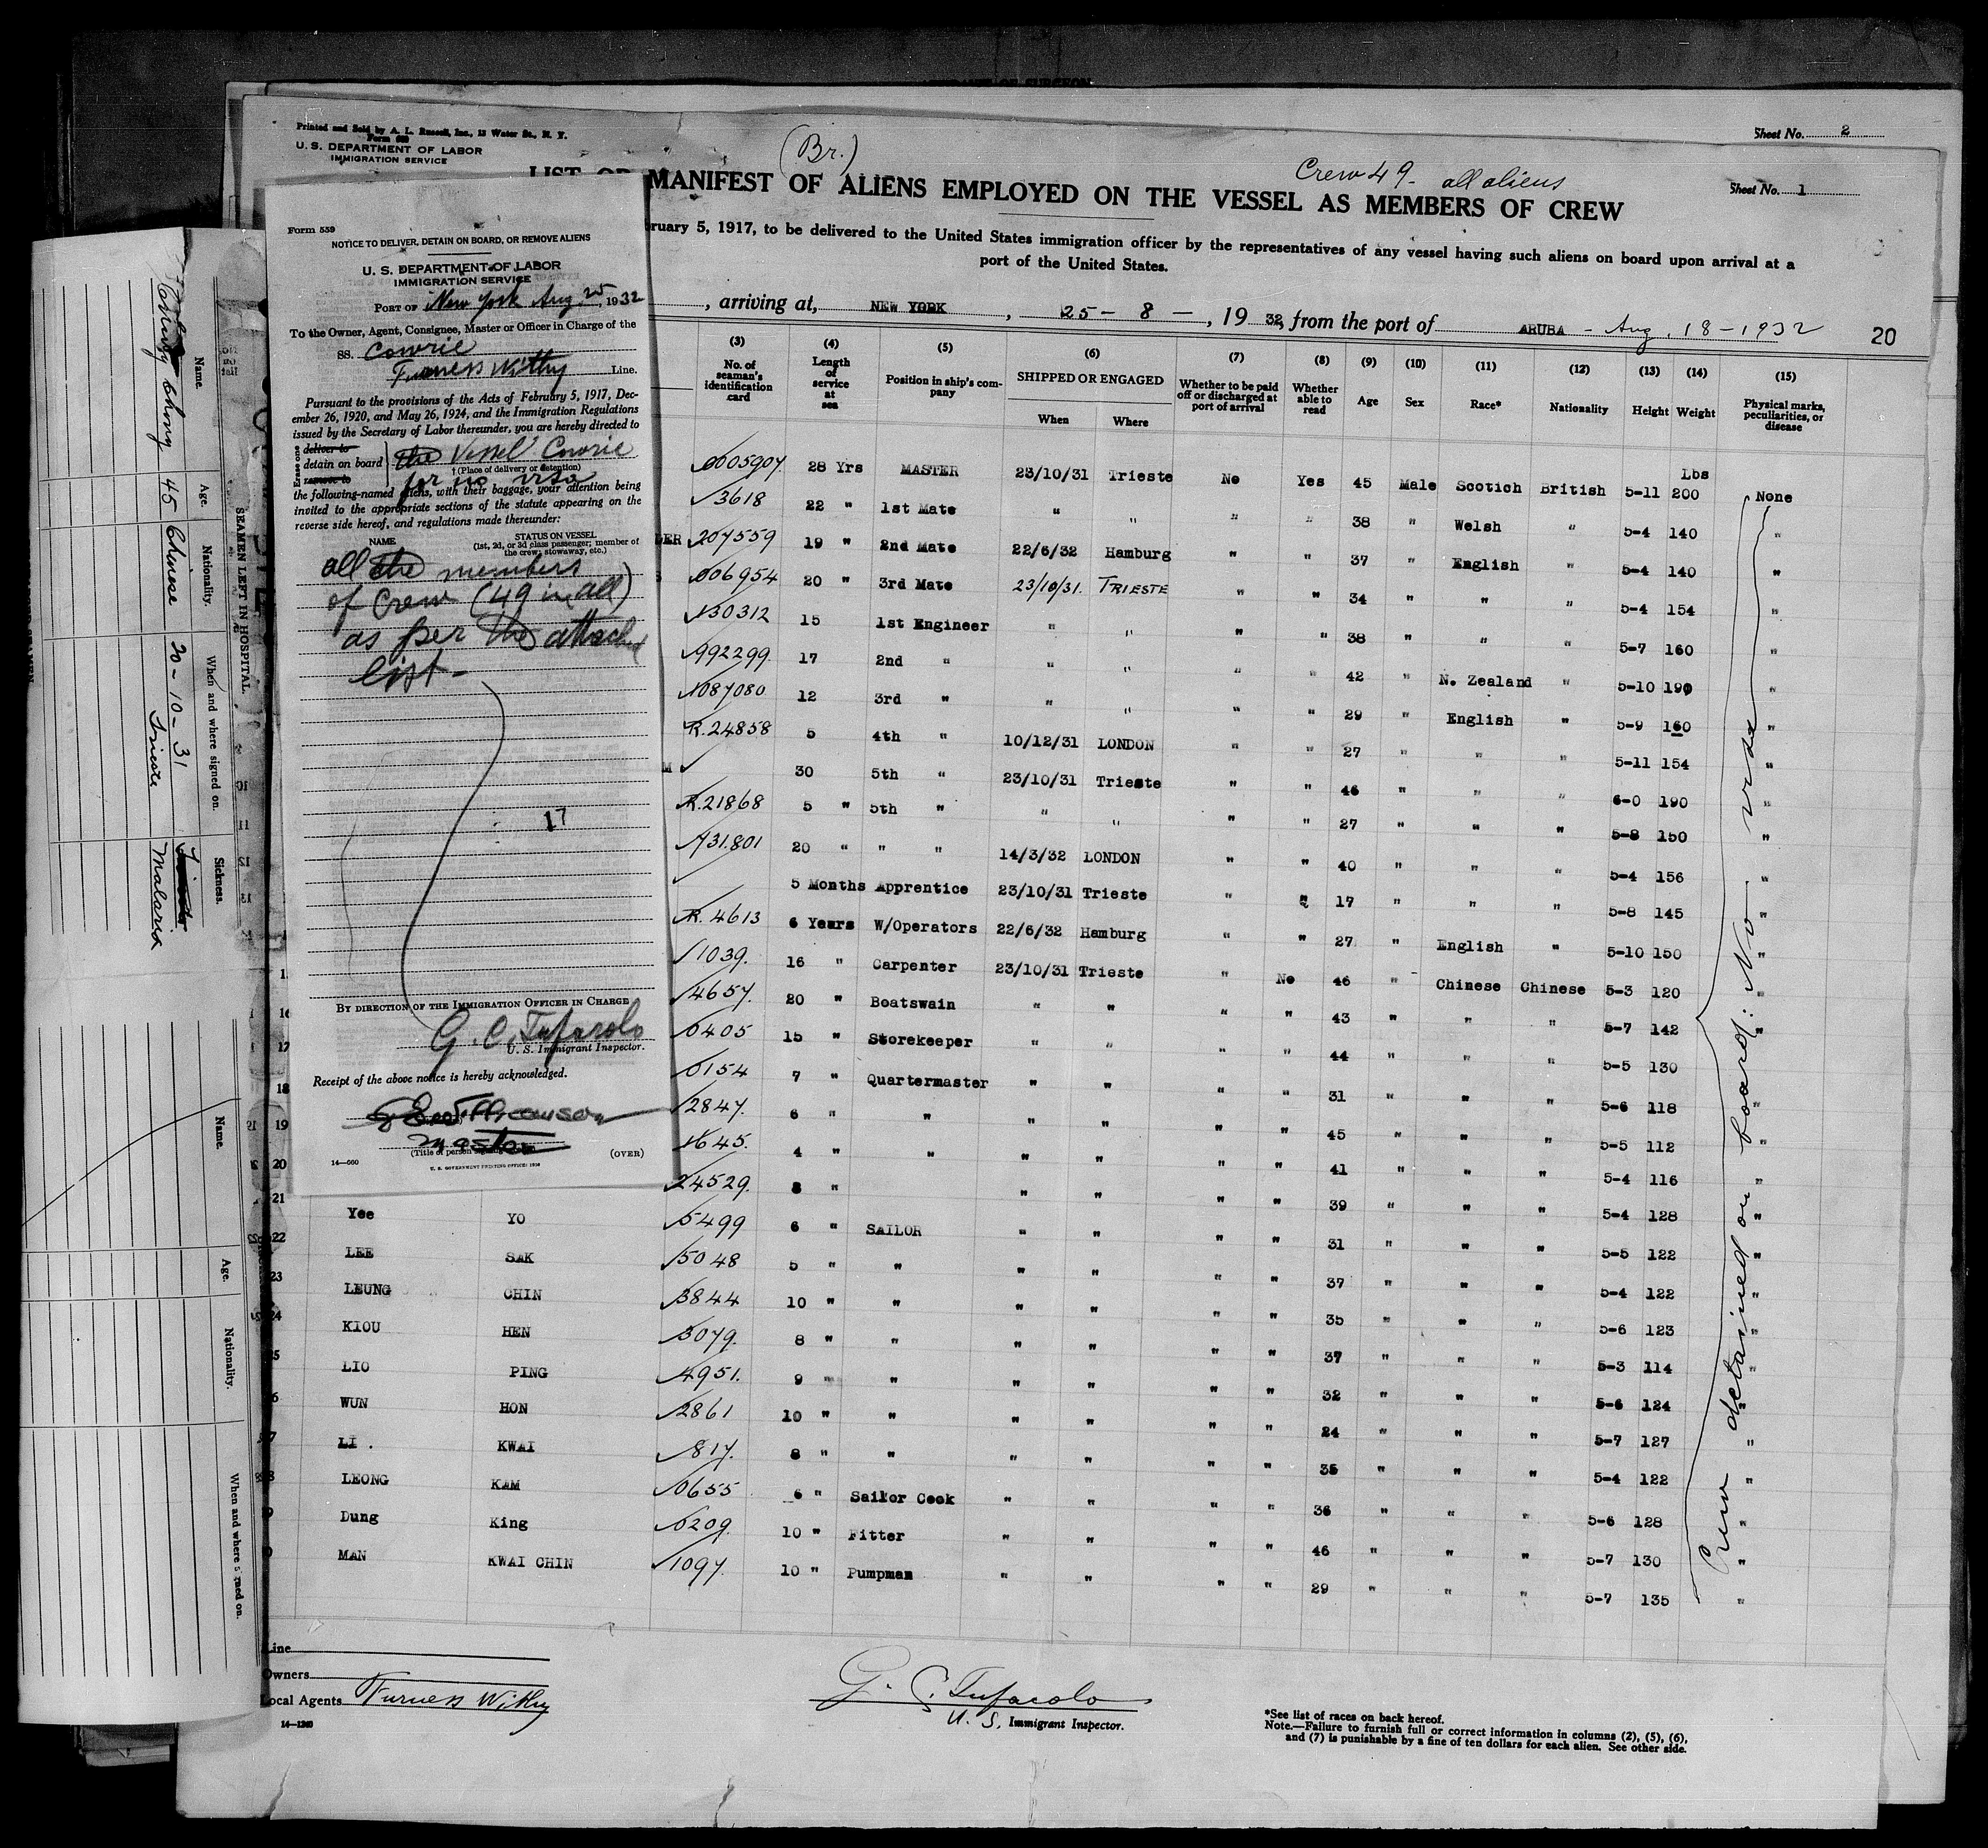 Printed and Sold by A. L. Russell, Inc., 13 Water St., N. Y.
U. S. DEPARTMENT OF LABOR
IMMIGRATION SERVICE
(Br.)
Crew 49 - all aliens
Sheet No. 2
Sheet No. 1
LIST OR MANIFEST OF ALIENS EMPLOYED ON THE VESSEL AS MEMBERS OF CREW
ruary 5, 1917, to be delivered to the United States immigration officer by the representatives of any vessel having such aliens on board upon arrival at a
port of the United States.
, arriving at, NEW YORK , 25 - 8 - , 19 32, from the port of ARUBA - Aug. 18 - 1932 20
Form 559
NOTICE TO DELIVER, DETAIN ON BOARD, OR REMOVE ALIENS
U. S. DEPARTMENT OF LABOR
IMMIGRATION SERVICE
PORT OF New York Aug. 25, 1932
To the Owner, Agent, Consignee, Master or Officer in Charge of the
SS. Cowrie
Furness Withy Line.
Pursuant to the provisions of the Acts of February 5, 1917, Dec-
ember 26, 1920, and May 26, 1924, and the Immigration Regulations
issued by the Secretary of Labor thereunder, you are hereby directed to
Erase one
deliver to
detain on board
remove to
the Vessel Cowrie
† (Place of delivery or detention)
for no visa
the following-named aliens, with their baggage, your attention being
invited to the appropriate sections of the statute appearing on the
reverse side hereof, and regulations made thereunder:
NAME STATUS ON VESSEL
(1st, 2d, or 3d class passenger; member of
the crew; stowaway, etc.)
all the members
of Crew (49 in all)
as per the attached
list -
17
BY DIRECTION OF THE IMMIGRATION OFFICER IN CHARGE
G. C. Tufarolo
U. S. Immigrant Inspector.
Receipt of the above notice is hereby acknowledged.
Master
(OVER)
14—560
U. S. GOVERNMENT PRINTING OFFICE
(3) No. of seaman's identification card
(4) Length of service at sea
(5) Position in ship's company
(6) SHIPPED OR ENGAGED When Where
(7) Whether to be paid off or discharged at port of arrival
(8) Whether able to read
(9) Age
(10) Sex
(11) Race*
(12) Nationality
(13) Height
(14) Weight
(15) Physical marks, peculiarities, or disease
Lbs
0005907 28 Yrs MASTER 23/10/31 Trieste No Yes 45 Male Scotich British 5-11 200 None
3618 22 " 1st Mate " " " " 38 " Welsh " 5-4 140 "
DER 207559 19 " 2nd Mate 22/6/32 Hamburg " " 37 " English " 5-4 140 "
S 006954 20 " 3rd Mate 23/10/31. TRIESTE " " 34 " " " 5-4 154 "
130312 15 1st Engineer " " " " 38 " " " 5-7 160 "
992299 17 2nd " " " " " 42 " N. Zealand " 5-10 190 "
1087080 12 3rd " " " " " 29 " English " 5-9 160 "
R.24858 5 4th " 10/12/31 LONDON " " 27 " " " 5-11 154 "
M 30 5th " 23/10/31 Trieste " " 46 " " " 6-0 190 "
R.21868 5 " 5th " " " " " 27 " " " 5-8 150 "
731.801 20 " " " 14/3/32 LONDON " " 40 " " " 5-4 156 "
5 Months Apprentice 23/10/31 Trieste " " 17 " " " 5-8 145 "
R. 4613 6 Years W/Operators 22/6/32 Hamburg " " 27 " English " 5-10 150 "
1039. 16 " Carpenter 23/10/31 Trieste " No 46 " Chinese Chinese 5-3 120 "
4657. 20 " Boatswain " " " " 43 " " " 5-7 142 "
0405 15 " Storekeeper " " " " 44 " " " 5-5 130 "
0154 7 " Quartermaster " " " " 31 " " " 5-6 118 "
2847. 6 " " " " " " 45 " " " 5-5 112 "
1645. 4 " " " " " " 41 " " " 5-4 116 "
24529. 8 " " " " " 39 " " " 5-4 128 "
21 Yee YO 5499 6 " SAILOR " " " " 31 " " " 5-5 122 "
22 LEE SAK 5048 5 " " " " " " 37 " " " 5-4 122 "
23 LEUNG CHIN 3844 10 " " " " " " 35 " " " 5-6 123 "
24 KIOU HEN 3079. 8 " " " " " " 37 " " " 5-3 114 "
LIO PING 4951. 9 " " " " " " 32 " " " 5-6 124 "
WUN HON 2861 10 " " " " " " 24 " " " 5-7 127 "
LI . KWAI 817. 8 " " " " " " 35 " " " 5-4 122 "
LEONG KAM 0655 6 " Sailor Cook " " " " 36 " " " 5-6 128 "
Dung King 0209 10 " Fitter " " " " 46 " " " 5-7 130 "
MAN KWAI CHIN 1097. 10 " Pumpman " " " " 29 " " " 5-7 135 "
Crew detained on board: No visa
Line
Owners
Local Agents Furness Withy
14—1240
G. C. Tufarolo
U. S. Immigrant Inspector.
*See list of races on back hereof.
Note.—Failure to furnish full or correct information in columns (2), (5), (6),
and (7) is punishable by a fine of ten dollars for each alien. See other side.
SEAMEN LEFT IN HOSPITAL.
Name. Age. Nationality. When and where signed on. Sickness.
Chong 45 Chinese 20-10-31 Trieste Malaria
Name. Age. Nationality. When and where signed on.